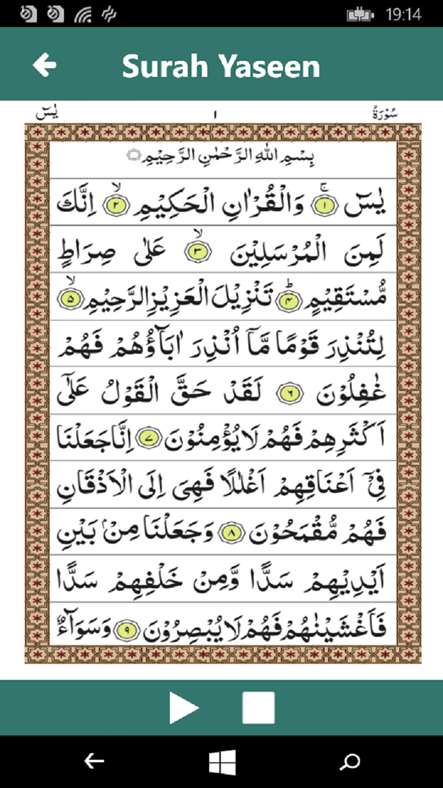 19:14
Surah Yaseen
سُوْرَةُ ١ يٰسٓ
بِسْمِ اللّٰهِ الرَّحْمٰنِ الرَّحِيْمِ
يٰسٓ ۚ‏ ﴿۱﴾ وَالْقُرْاٰنِ الْحَكِيْمِ ۙ‏ ﴿۲﴾ اِنَّكَ
لَمِنَ الْمُرْسَلِيْنَ ۙ‏ ﴿۳﴾ عَلٰى صِرَاطٍ
مُّسْتَقِيْمٍ ؕ‏ ﴿۴﴾ تَنْزِيْلَ الْعَزِيْزِ الرَّحِيْمِ ۙ‏ ﴿۵﴾
لِتُنْذِرَ قَوْمًا مَّاۤ اُنْذِرَ اٰبَآؤُهُمْ فَهُمْ
غٰفِلُوْنَ ﴿۶﴾ لَقَدْ حَقَّ الْقَوْلُ عَلٰٓى
اَكْثَرِهِمْ فَهُمْ لَا يُؤْمِنُوْنَ ﴿۷﴾ اِنَّا جَعَلْنَا
فِىْۤ اَعْنَاقِهِمْ اَغْلٰلًا فَهِىَ اِلَى الْاَذْقَانِ
فَهُمْ مُّقْمَحُوْنَ ﴿۸﴾ وَجَعَلْنَا مِنْۢ بَيْنِ
اَيْدِيْهِمْ سَدًّا وَّمِنْ خَلْفِهِمْ سَدًّا
فَاَغْشَيْنٰهُمْ فَهُمْ لَا يُبْصِرُوْنَ ﴿۹﴾ وَسَوَآءٌ